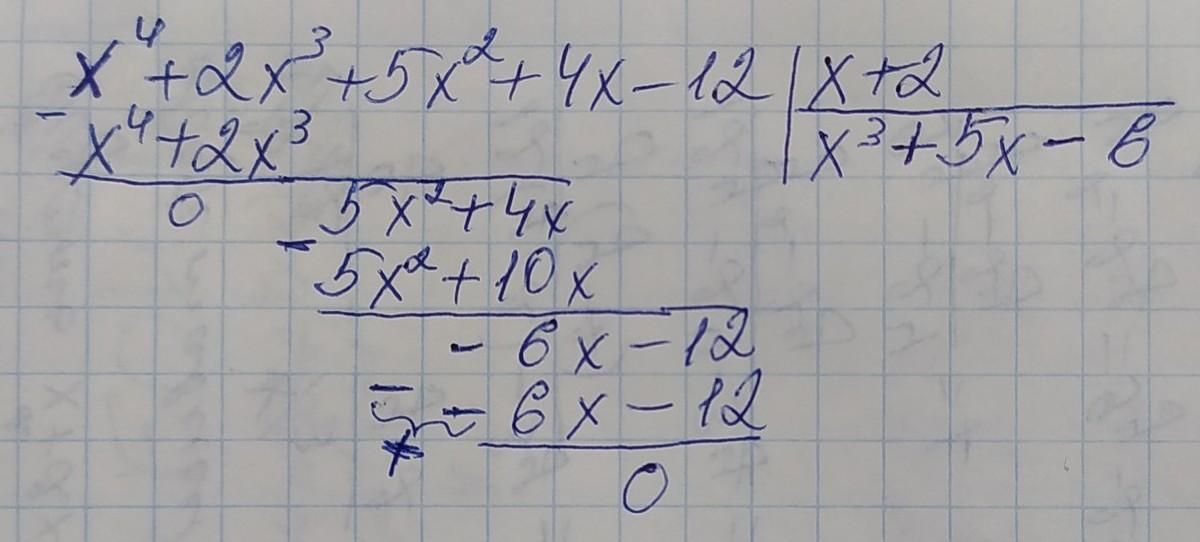 x⁴+2x³+5x²+4x-12 | x+2
- x⁴+2x³ | x³+5x-6
0 5x²+4x
- 5x²+10x
-6x-12
- -6x-12
+
0